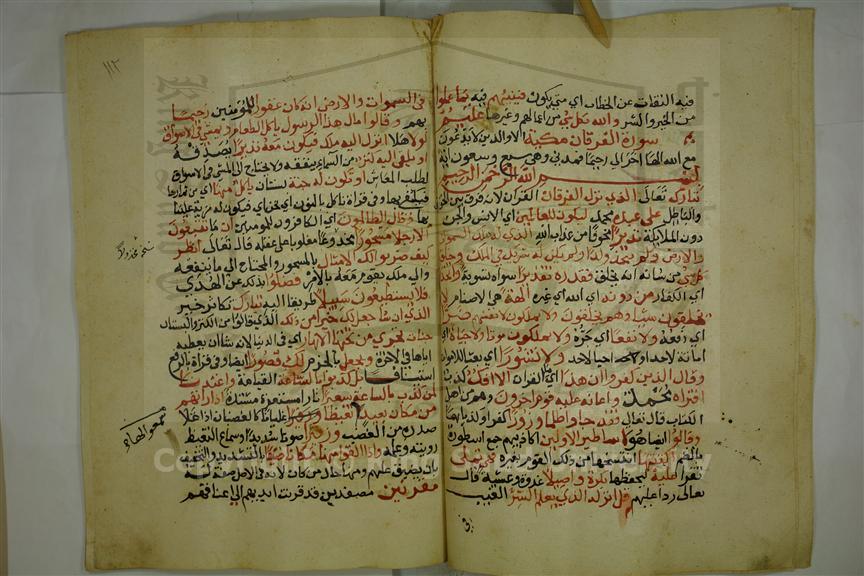 فيه التفات عن الخطاب أي متى يكون فينبئهم فيه بما عملوا
من الخير والشر والله بكل شئ من اعمالهم وغيرها عليم
سورة الفرقان مكية الا والذين لا يدعون
مع الله الها اخر الى رحيما فمدني وهي سبع وسبعون اية
بسم الله الرحمن الرحيم
تبارك تعالى الذي نزل الفرقان القران لانه فرق بين الحق
والباطل على عبده محمد ليكون للعالمين أي الانس والجن
دون الملايكة نذيرا مخوفا من عذاب الله الذي له ملك السموات
والارض ولم يتخذ ولدا ولم يكن له شريك في الملك وخلق
كل شئ من شانه انه يخلق فقدره تقديرا سواه تسوية واتخذوا
أي الكفار من دونه أي الله أي غيره الهة هي الاصنام لا
يخلقون شيئا وهم يخلقون ولا يملكون لانفسهم ضرا
أي دفعه ولا نفعا أي جره ولا يملكون موتا ولا حياة أي
اماتة لاحد واحياء لاحد ولا نشورا أي بعثا للاموات
وقال الذين كفروا ان هذا أي القران الا افك كذب
افتراه محمد واعانه عليه قوم اخرون وهم من اهل
الكتاب قال تعالى فقد جاوا ظلما وزورا كفرا وكذبا بهما
وقالوا ايضا هو اساطير الاولين اكاذيبهم جمع اسطورة
بالضم اكتتبها انتسخها من ذلك القوم بغيره فهي تملى
تقرا عليه ليحفظها بكرة واصيلا غدوة وعشية قال
تعالى ردا عليهم قل انزله الذي يعلم السر الغيب
في
١١٢
في السموات والارض انه كان غفورا للمؤمنين رحيما
بهم وقالوا مال هذا الرسول ياكل الطعام ويمشي في الاسواق
لولا هلا انزل اليه ملك فيكون معه نذيرا يصدقه
او يلقى اليه كنز من السماء ينفقه ولا يحتاج الى المشي في الاسواق
لطلب المعاش او تكون له جنة بستان ياكل منها أي من ثمارها
فيكتفي بها وفي قراة ناكل بالنون أي نحن أي فيكون له مزية علينا
بها وقال الظالمون أي الكافرون للمومنين ان ما تتبعون
الا رجلا مسحورا مخدوعا مغلوبا على عقله قال تعالى انظر
كيف ضربوا لك الامثال بالمسحور والمحتاج الى ما ينفقه
والى ملك يقوم معه بالامر فضلوا بذلك عن الهدى
فلا يستطيعون سبيلا طريقا اليه تبارك تكاثر خير
الذي ان شا جعل لك خيرا من ذلك الذي قالوا من الكنز والبستان
جنات تجري من تحتها الانهار أي في الدنيا لانه شا ان يعطيه
اياها في الاخرة ويجعل بالجزم لك قصورا ايضا وفي قراة بالرفع
استئنافا بل كذبوا بالساعة القيامة واعتدنا
لمن كذب بالساعة سعيرا نارا مسعرة مشتدة اذا راتهم
من مكان بعيد سمعوا لها تغيظا غليانا كالغضبان اذا غلا
صدره من الغضب وزفيرا صوتا شديدا او سماع التغيظ
رويته وعلمه واذا القوا منها مكانا ضيقا بالتشديد والتخفيف
بان يضيق عليهم ومنها حال من مكانا لانه في الاصل صفة له
مقرنين مصفدين قد قرنت ايديهم الى اعناقهم
سمعوا لها